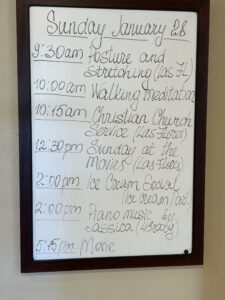 Sunday January 28
9:30am Posture and
Stretching (Las FL)
10:00am Walking Meditation
10:15am Christian Church
Service (Las Flores)
12:30pm Sunday at the
Movies (Las Flores)
2:00pm Ice Cream Social
(Ice cream
2:00pm Piano music by
Jassica
5:15pm Movie